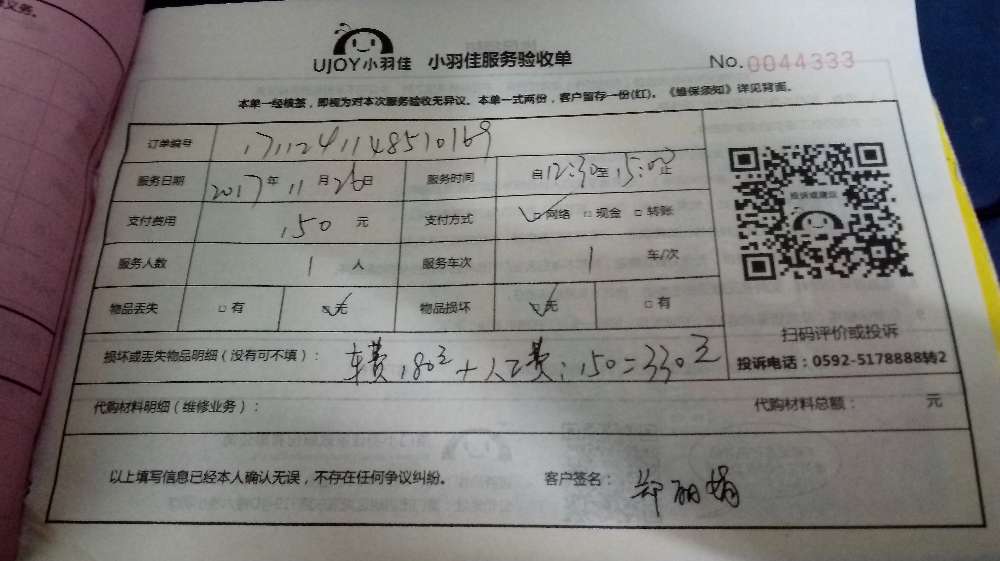 UJOY小羽佳 小羽佳服务验收单 No. 0044333
本单一经核签，即视为对本次服务验收无异议。本单一式两份，客户留存一份(红)。《维保须知》详见背面。
订单编号 1711241148510169
服务日期 2017年11月26日 服务时间 自12:30至15:00止
投诉或建议
支付费用 150 元 支付方式 ☑网络 □现金 □转账
服务人数 1 人 服务车次 1 车/次
物品丢失 □有 ☑无 物品损坏 ☑无 □有
扫码评价或投诉
损坏或丢失物品明细（没有可不填）： 车费180元+人工费:150=330元
投诉电话：0592-5178888转2
代购材料明细（维修业务）： 代购材料总额： 元
以上填写信息已经本人确认无误，不存在任何争议纠纷。 客户签名： 郑丽娟